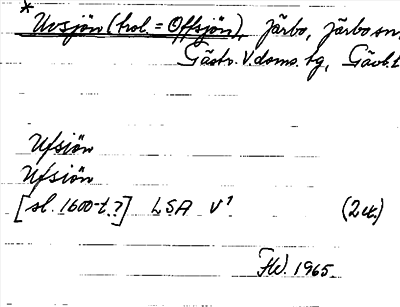 * Uvsjön (trol. = Offsjön), Järbo, Järbo sn,
Gästr. V. doms. tg, Gävl. l
Ufsjön
Ufsiön
[sl. 1600-t.?] LSA V¹ (2 ex.)
Hd. 1965.